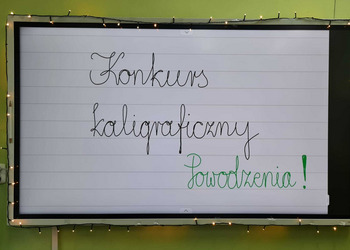 Konkurs
kaligraficzny
Powodzenia!